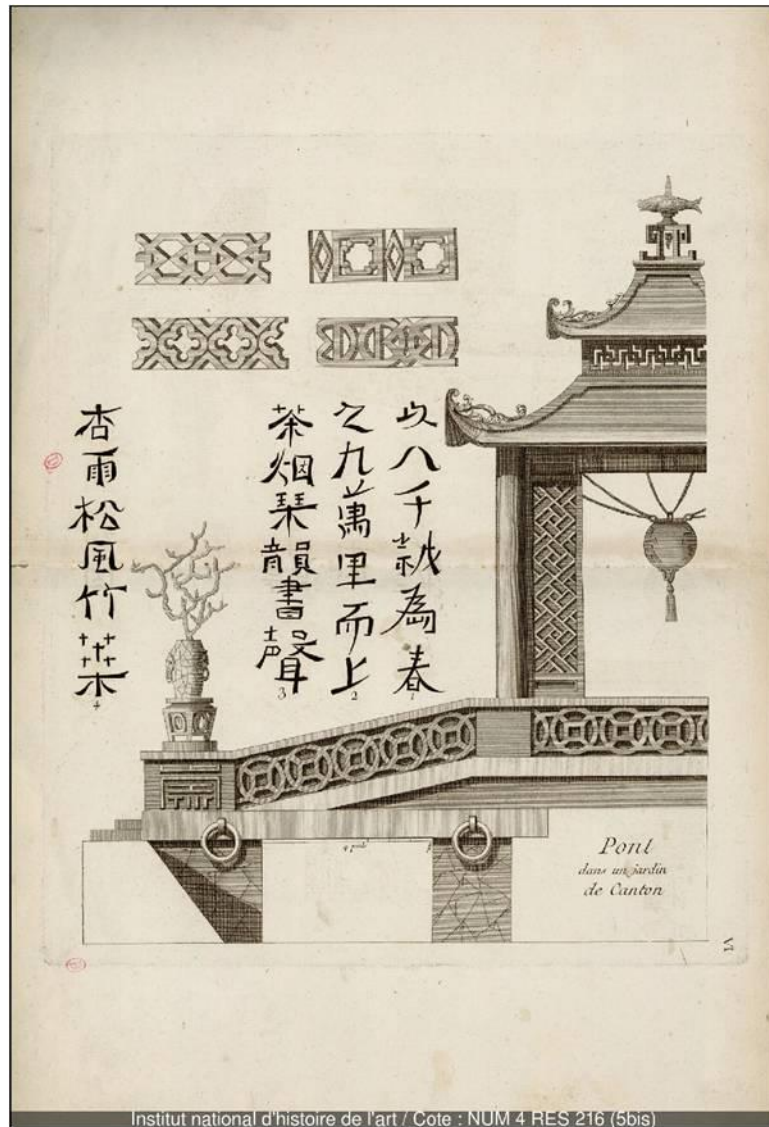 以八千歲為春
1
之九萬里而上
2
茶烟琹韻書聲
3
杏雨松風竹
4
Pont
dans un jardin
de Canton
VI
Institut national d'histoire de l'art / Cote : NUM 4 RES 216 (5bis)